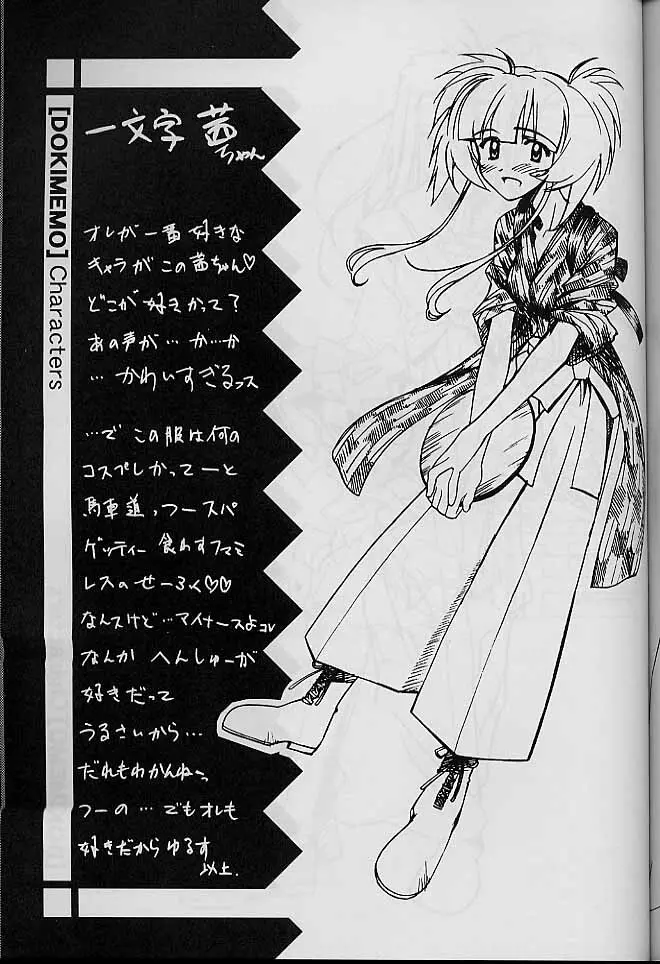 [DOKIMEMO] Characters
一文字 茜
ちゃん
オレが一番好きな
キャラがこの茜ちゃん♡
どこが好きかって?
あの声が…か…か
…かわいすぎるっス
…で この服は何の
コスプレかってーと
馬車道っつースパ
ゲッティー食わすファミ
レスのせーふく♡♡
なんスけど…マイナースよコレ
なんか へんしゅーが
好きだって
うるさいから…
だれもわかんねーっ
つーの…でもオレも
好きだからゆるす
以上.